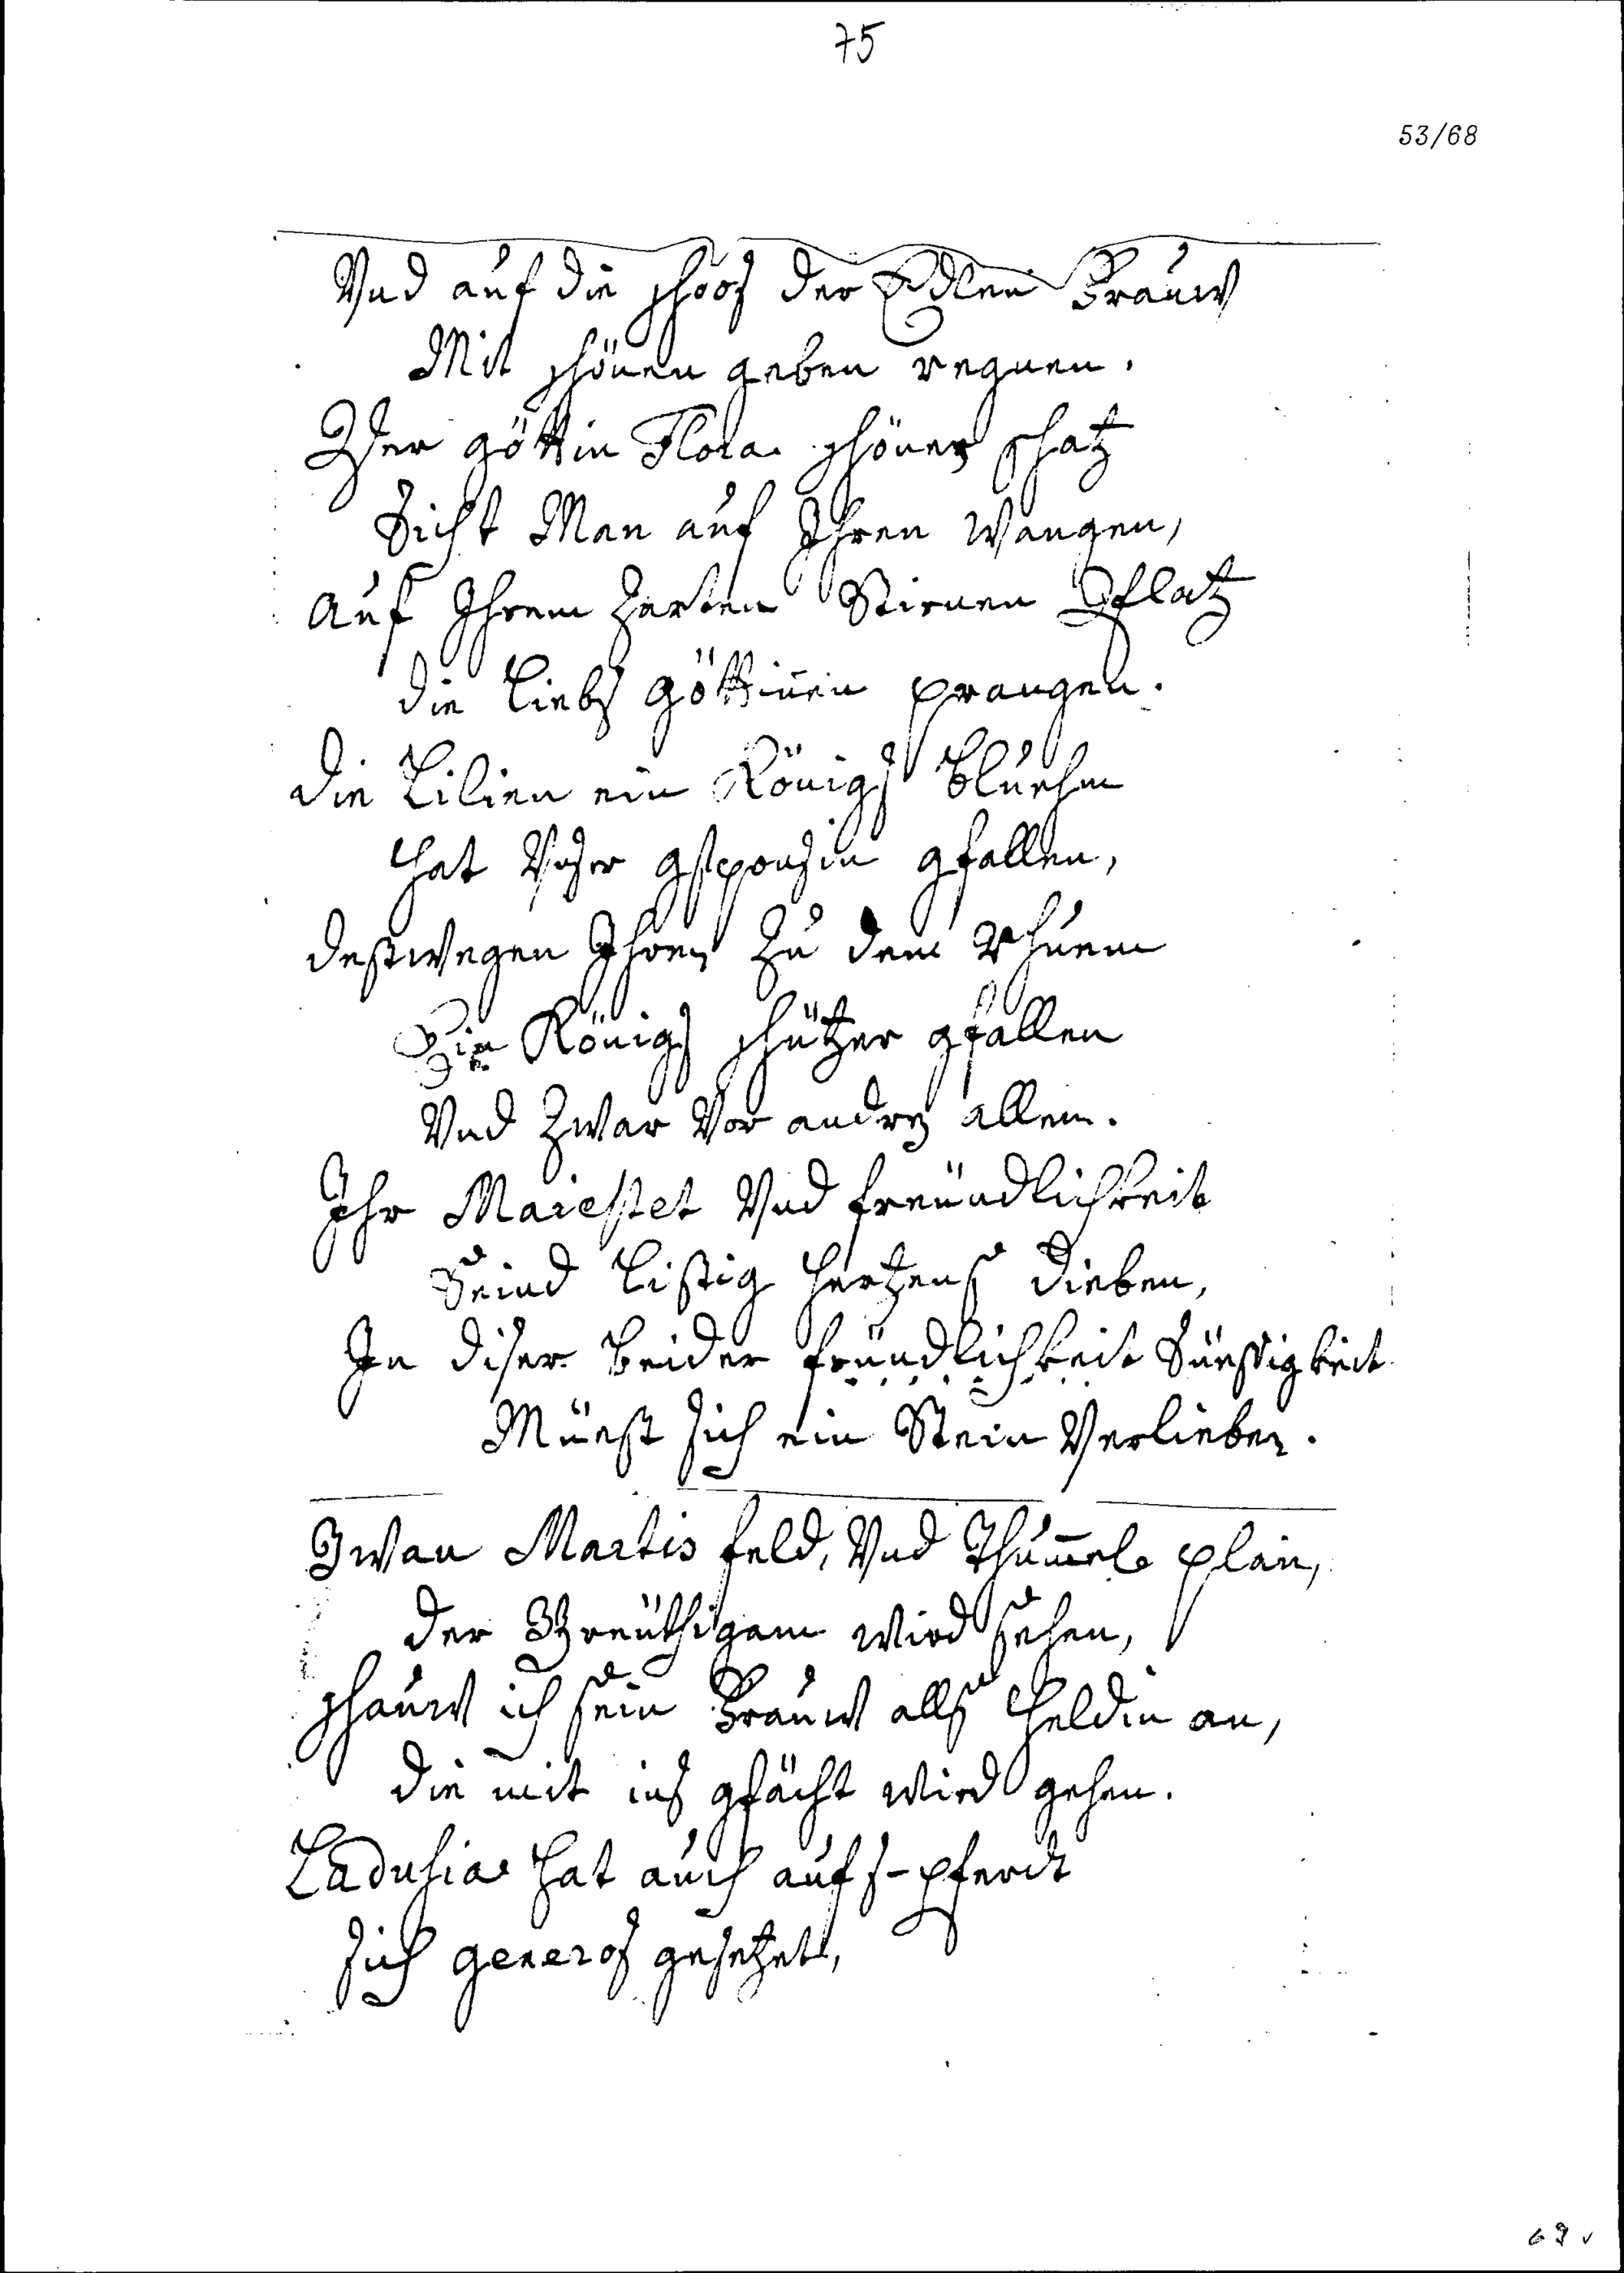 75
53/68
Vnd auf die schoos der Edlen Brauw
Mit schönen geben regnen.
Der göttin Flora schöner schatz
Sicht Man auf Ihren Wangen,
auf Ihrem Zarten Stirnen Pflatz
die Liebs göttinen prangen.
die Lilien ein Königs bluehm
hat Vnser gsponsin gfallen,
destwegen Ihren Zu dem rhuem
Ein Königs schützer gfallen
Vnd Zwar Vor andren allen.
Ihr Maiestet Vnd freündlichkeit
Seind Listig hertzens dieben,
In diser beider fründlichkeit Süessigkeit
Müest sich ein Stein Verlieben.
Zwan Martis feld, Vnd Thummel plan,
der Breüthigam wird sehen,
schauw ich sein Brauw alls heldin an,
die mit ins gfächt wird gehen.
Ladusia hat auch aufs-pferdt
sich generos gesetzet,
69 v